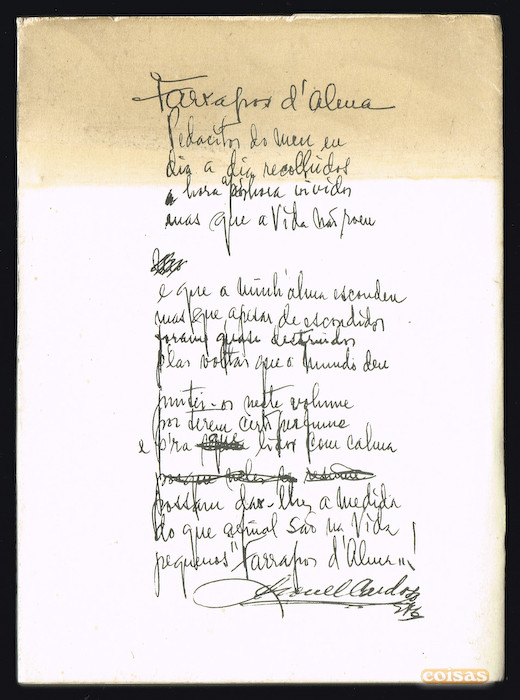 Farrapos d'Alma
Pedacitos do meu eu
dia a dia recolhidos
a hora a hora vividos
mas que a Vida não roeu
e que a minh'alma escondeu
mas que apesar de escondidos
foram quase destruidos
plas voltas que o mundo deu
juntei-os neste volume
por terem certo perfume
e p'ra lidos com calma
possam dar-lhes a medida
do que afinal são na Vida
pequenos "Farrapos d'Alma"!
Leonel Cardoso
coisas